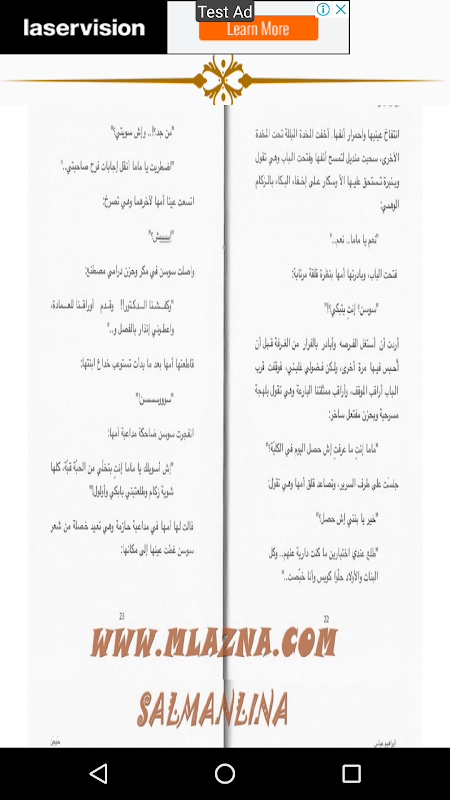 laservision
Test Ad
Learn More
انتفاخ عينيها واحمرار أنفها. أخفت المخدة البللة تحت المخدة
الأخرى، سحبت منديل لتمسح أنفها وفتحت الباب وهي تقول
وبنبرة تستحق عليها الأوسكار على إخفاء البكاء بالزكام
الوهمي:
"نعم يا ماما.. نعم.."
فتحت الباب، وبادرتها أمها بنظرة قلقة مرتابة:
"سوسن؟ إنتِ بتبكي؟!"
أردت أن أستغل الفرصه وأبادر بالفرار من الغرفة قبل أن
أُحبس فيها مرة أخرى، ولكن فضولي غلبني، فوقفت قرب
الباب أراقب الموقف، وأراقب ممثلتنا البارعة وهي تقول بلهجة
مسرحية وبحزن مفتعل ساخر:
"ماما إنتِ ما عرفتِ إش حصل اليوم في الكلية؟!"
جلست على طرف السرير، وتصاعد قلق أمها وهي تقول:
"خير يا بنتي إش حصل؟"
"طلع عندي اختبارين ما كنت دارية عنهم.. وكل
البنات والأولاد حلّوا كويس وأنا خبّصت.."
22
"من جد؟!.. وإش سويتي؟"
"اضطريت يا ماما أنقل إجابات فرح صاحبتي.."
اتسعت عينا أمها لآخرهما وهي تصرخ:
"إيييييش؟"
واصلت سوسن في مكر وحزن درامي مصطنع:
"وكفشنا الدكتور!! وقدم أوراقنا للعمادة،
وأعطوني إنذار بالفصل و.."
قاطعتها أمها بعد ما بدأت تستوعب خداع ابنتها:
"سوووسسسن!"
انفجرت سوسن ضاحكة مداعبة أمها:
"إش أسويلك يا ماما إنتِ بتخلّي من الحبّة قبّة، كلها
شوية زكام وطلعتيني بابكي وأولول!"
قالت لها أمها في مداعبة حازمة وهي تعيد خصلة من شعر
سوسن غطت عينها إلى مكانها:
23
WWW.MLAZNA.COM
SALMANLINA
ابراهيم عباس
حَوْجَن